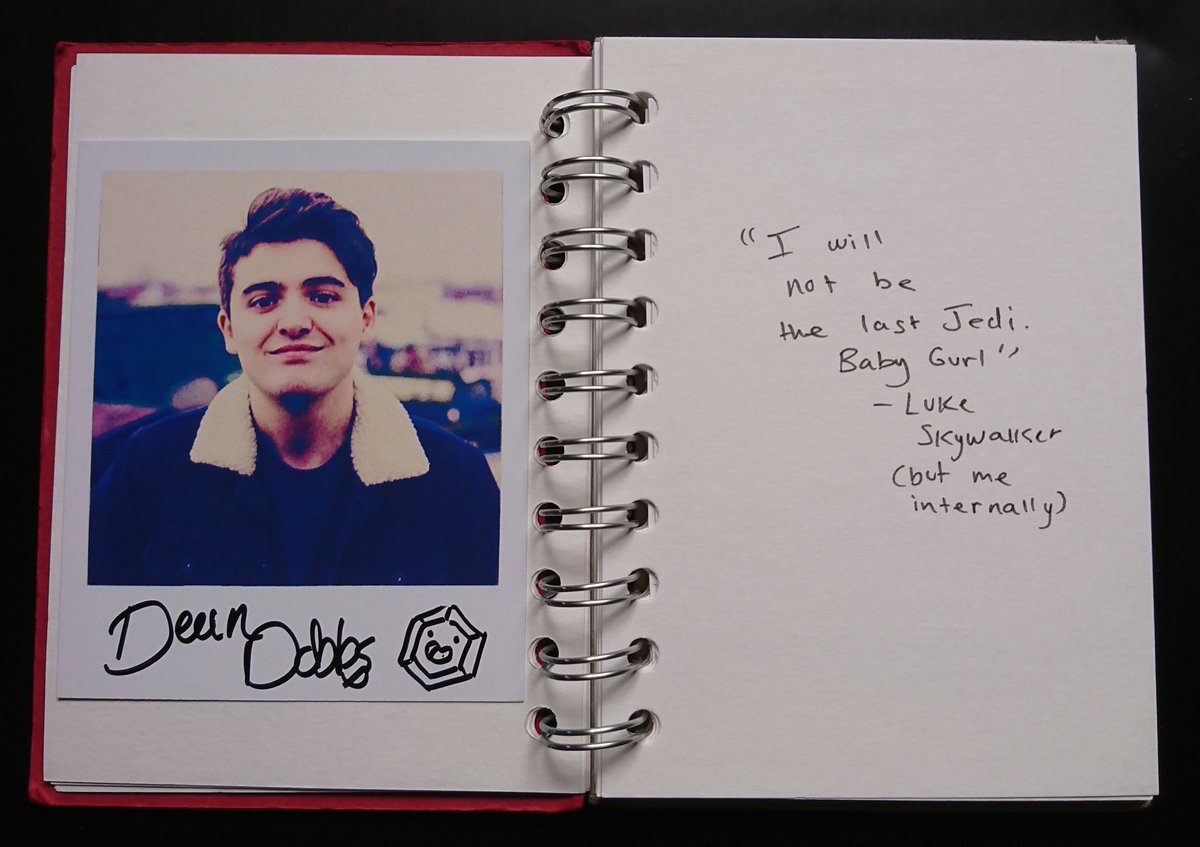 Dean
Dobbs
“I will
not be
the last Jedi.
Baby Gurl”
- Luke
Skywalker
(but me
internally)